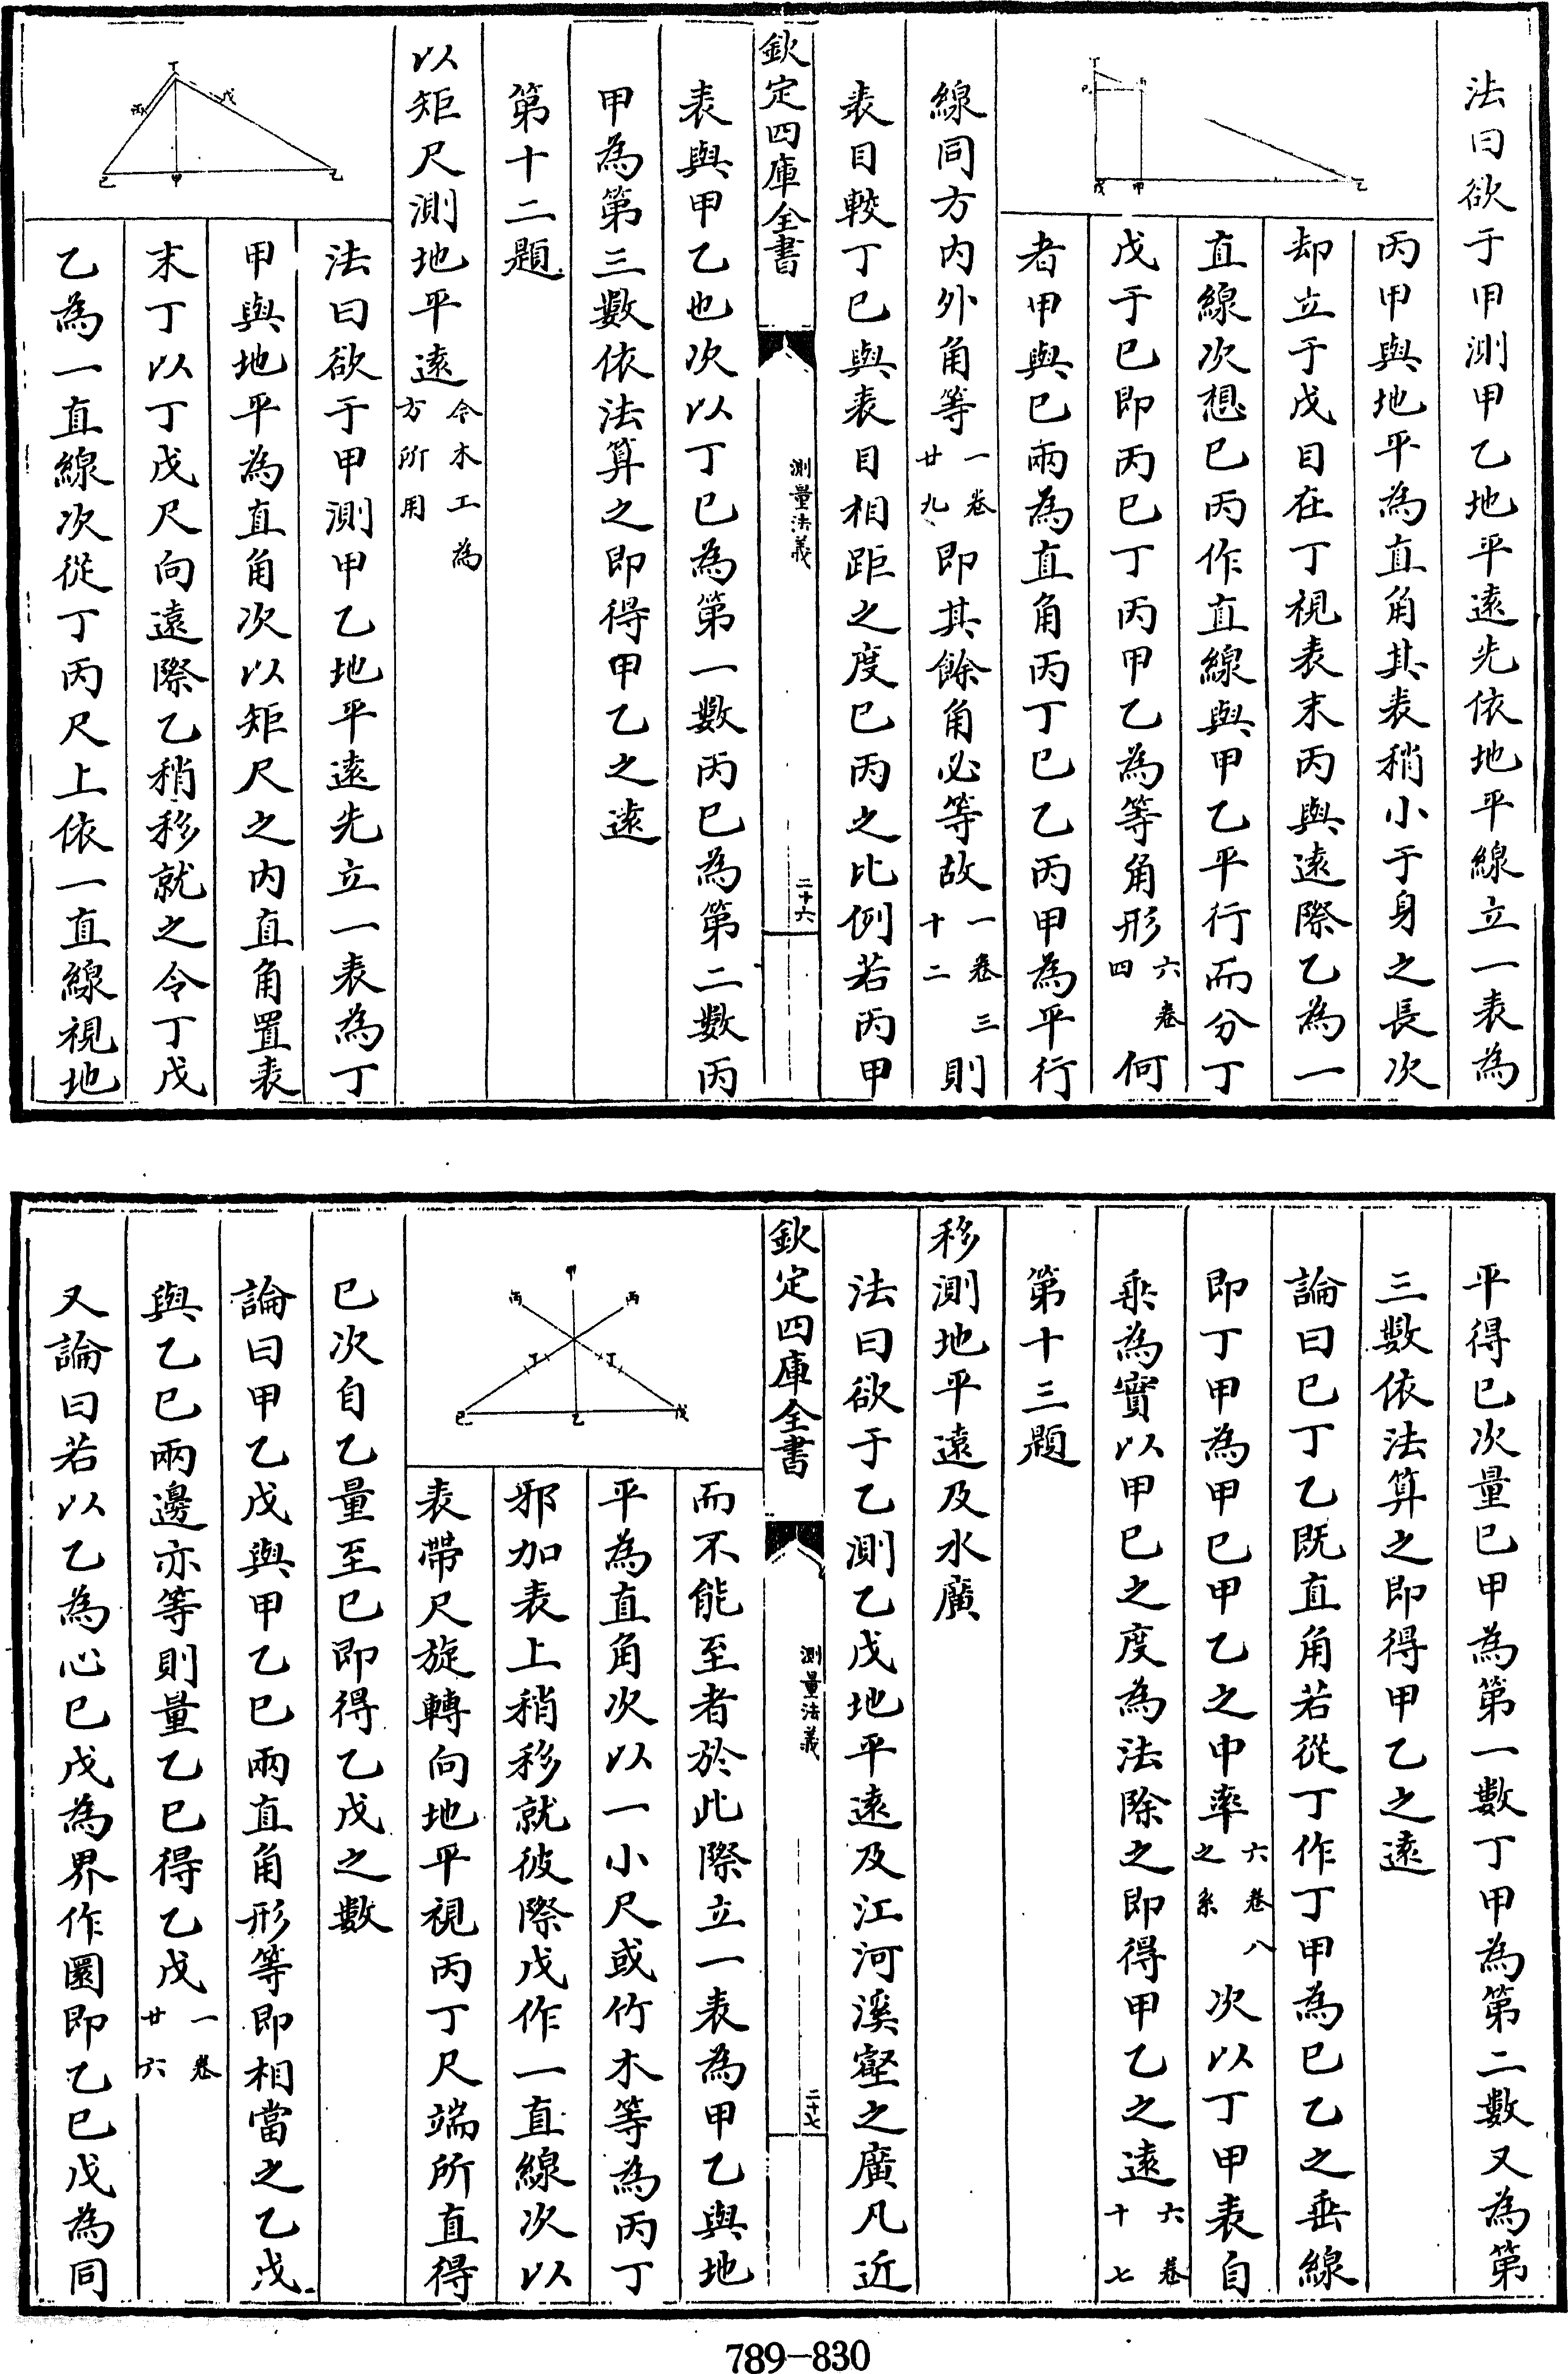 法曰欲于甲測甲乙地平遠先依地平線立一表為
丙甲與地平為直角其表稍小于身之長次
却立于戊目在丁視表末丙與遠際乙為一
直線次想巳丙作直線與甲乙平行而分丁
戊于巳即丙巳丁丙甲乙為等角形六卷四何
者甲與巳兩為直角丙丁巳乙丙甲為平行
線同方內外角等一卷廿九即其餘角必等故一卷三十二則
表目較丁巳與表目相距之度巳丙之比例若丙甲
欽定四庫全書
測量法義
二十六
表與甲乙也次以丁巳為第一數丙巳為第二數丙
甲為第三數依法算之即得甲乙之遠
第十二題
以矩尺測地平遠今木工為方所用
丁
丙
戊
巳
甲
乙
法曰欲于甲測甲乙地平遠先立一表為丁
甲與地平為直角次以矩尺之內直角置表
末丁以丁戊尺向遠際乙稍移就之令丁戊
乙為一直線次從丁丙尺上依一直線視地
平得巳次量巳甲為第一數丁甲為第二數又為第
三數依法算之即得甲乙之遠
論曰巳丁乙既直角若從丁作丁甲為巳乙之垂線
即丁甲為甲巳甲乙之中率六卷八之系次以丁甲表自
乘為實以甲巳之度為法除之即得甲乙之遠六卷十七
第十三題
移測地平遠及水廣
法曰欲于乙測乙戊地平遠及江河溪壑之廣凡近
欽定四庫全書
測量法義
二十七
而不能至者於此際立一表為甲乙與地
平為直角次以一小尺或竹木等為丙丁
邪加表上稍移就彼際戊作一直線次以
表帶尺旋轉向地平視丙丁尺端所直得
甲
丙
丙
丁
丁
巳
乙
戊
巳次自乙量至巳即得乙戊之數
論曰甲乙戊與甲乙巳兩直角形等即相當之乙戊
與乙巳兩邊亦等則量乙巳得乙戊一卷廿六
又論曰若以乙為心巳戊為界作圜即乙巳戊為同
789-830